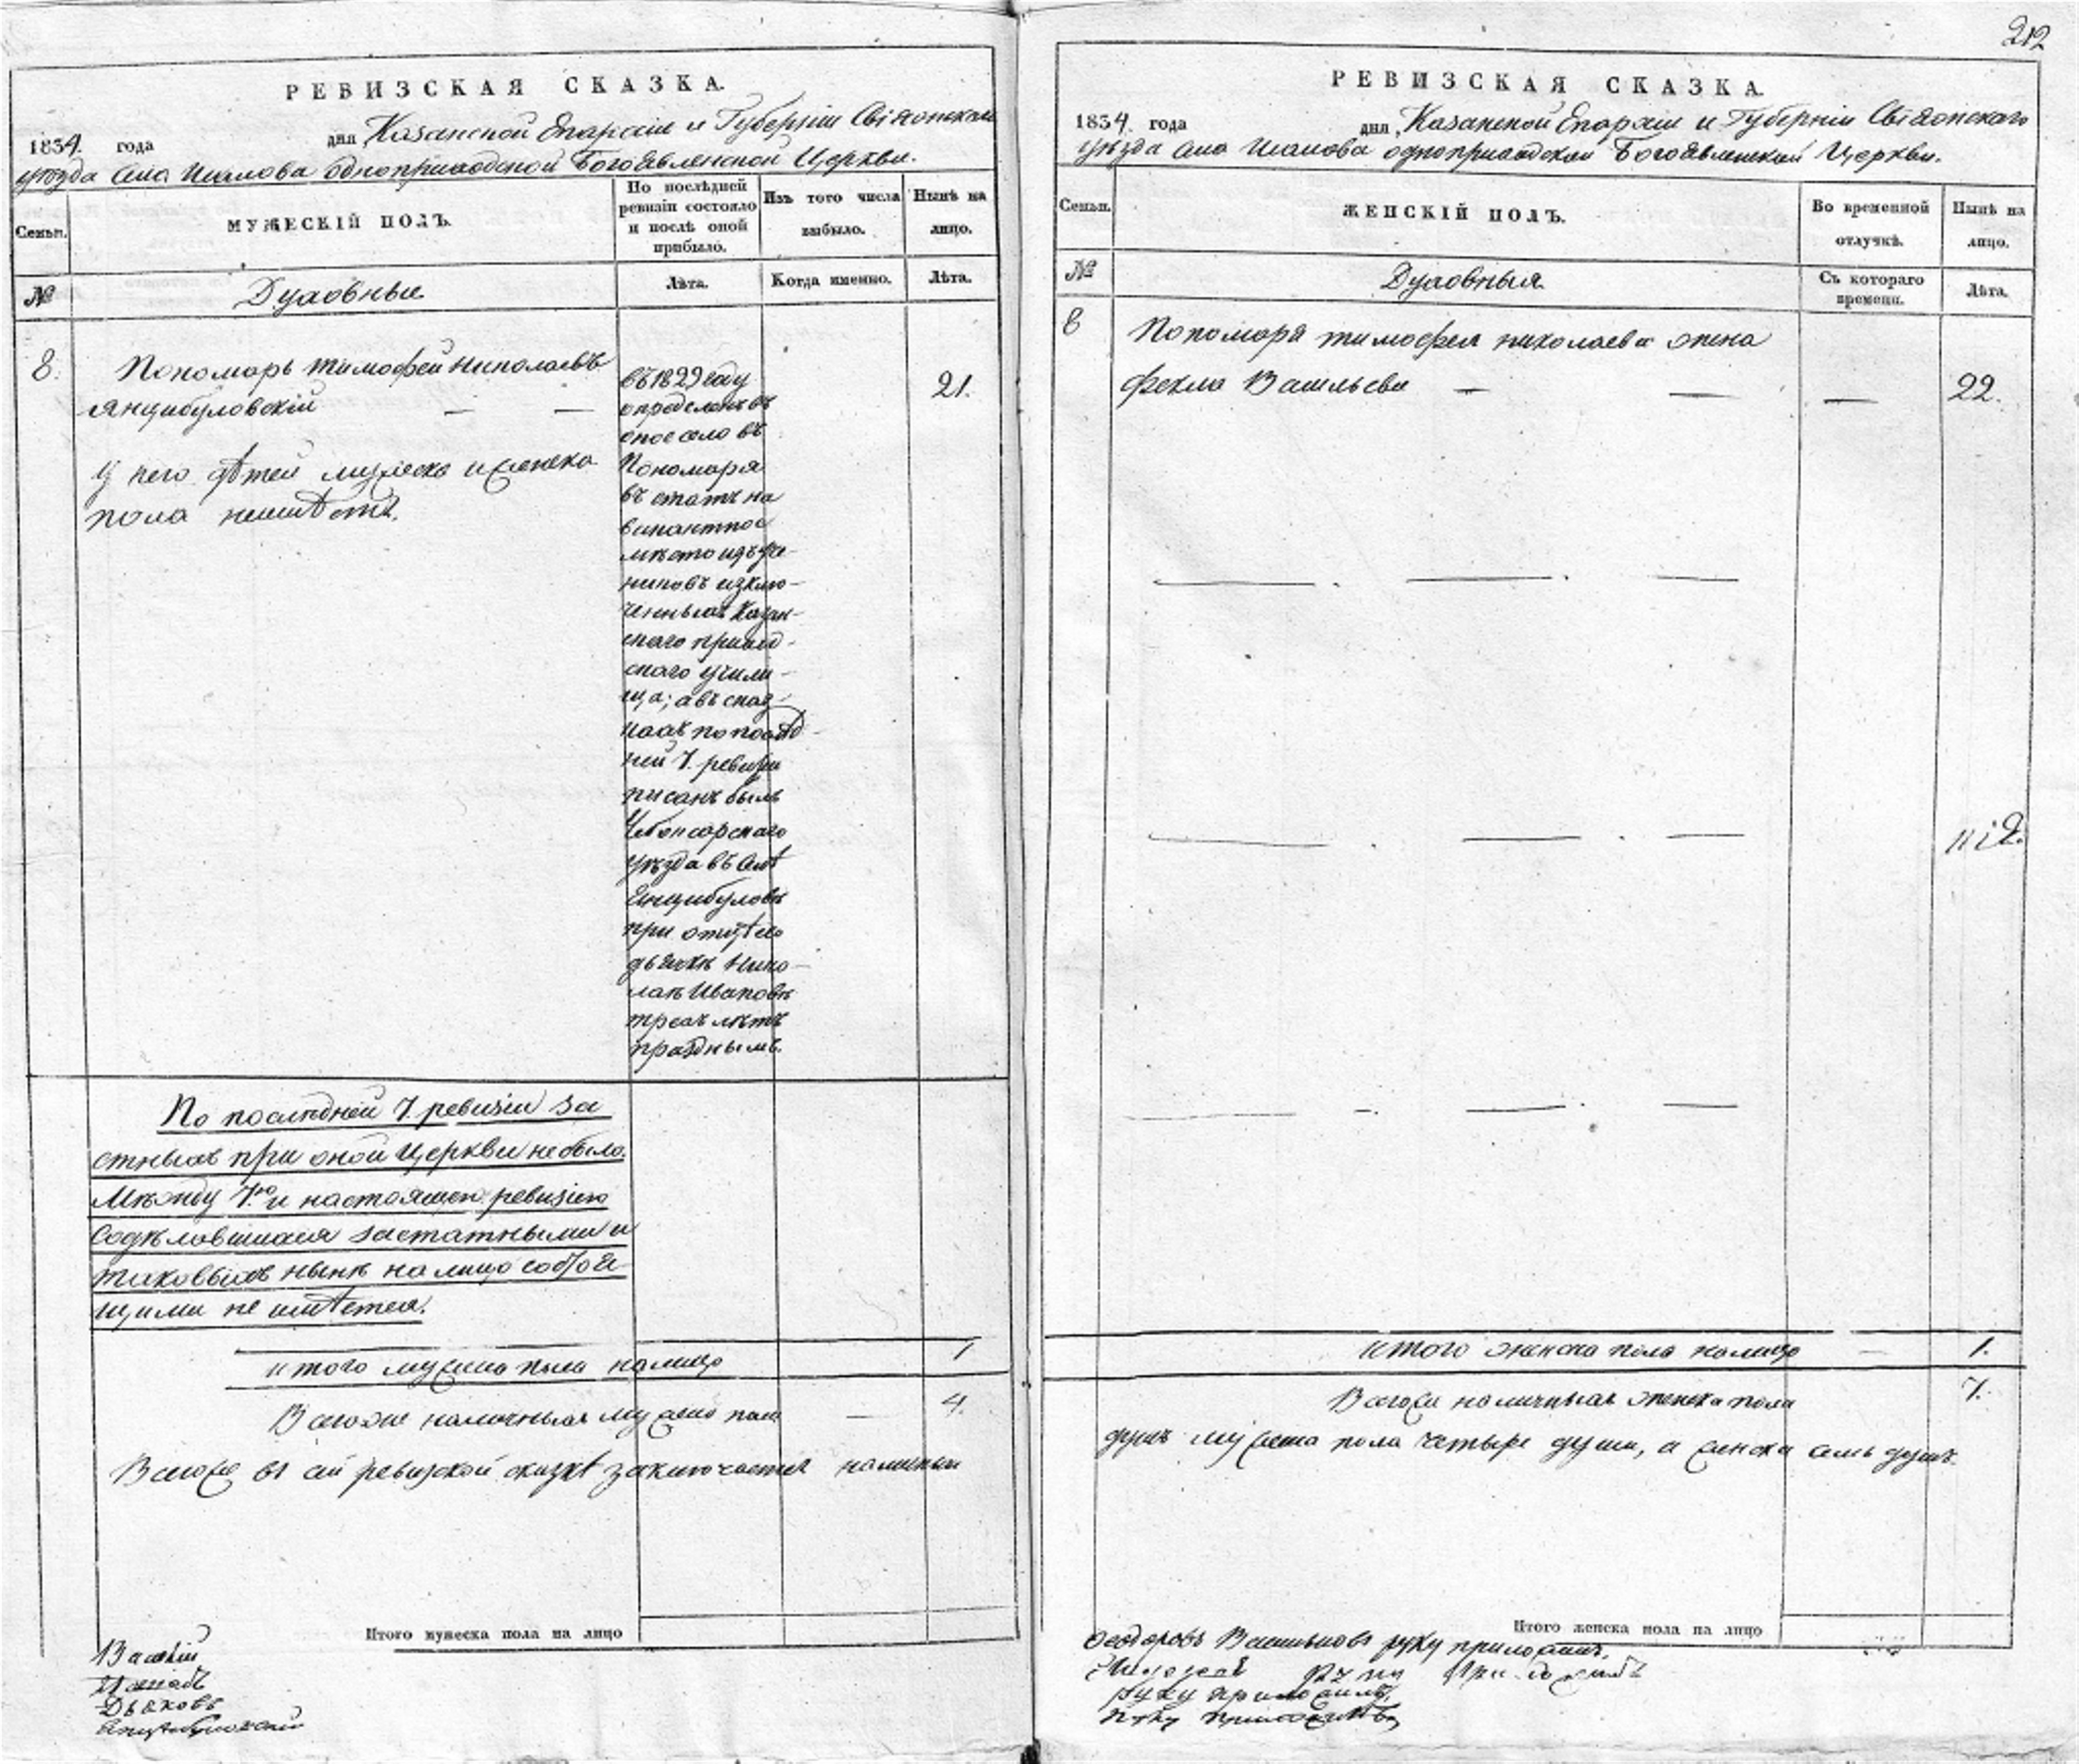 212
РЕВИЗСКАЯ СКАЗКА.
1834. года дня Казанской Епархіи и Губерніи Свіяжскаго
уѣзда села одноприходской Богоявленской Церкви.
Семьи.
МУЖЕСКІЙ ПОЛЪ.
По послѣдней
ревизіи состояло
и послѣ оной
прибыло.
Изъ того числа
выбыло.
Нынѣ на
лицо.
№
Духовные
Лѣта.
Когда именно.
Лѣта.
8.
Пономарь Тимофей Николаевъ
Янцибуловскій — —
21.
У него дѣтей мужеска и женска
пола неимѣетъ.
въ 1829 году
опредѣленъ въ
оное село въ
Пономаря
въ штатъ на
вакантное
мѣсто изъ уче-
никовъ изклю-
ченныхъ Казан-
скаго приход-
скаго учили-
ща; а въ сказ-
кахъ по послѣд-
ней 7. ревизіи
писанъ былъ
Чебоксарскаго
уѣзда въ селѣ
Янцибуловѣ
при отцѣ его
дьячкѣ Нико-
лаѣ Ивановѣ
трехъ лѣтъ
празднымъ.
По послѣдней 7. ревизіи за
штныхъ при оной Церкви небыло.
Между 7.ю и настоящею ревизіею
содѣлавшихся заштатными и
таковыхъ нынѣ на лицо состоя-
щими не имѣется.
Итого мужеска пола на лицо 1
Всего же наличныхъ мужеска пола — 4.
Всего же въ сей ревизской сказкѣ заключается наличныхъ
Итого мужеска пола на лицо
Василій
Дьяковъ
РЕВИЗСКАЯ СКАЗКА.
1834. года дня Казанской Епархіи и Губерніи Свіяжскаго
уѣзда села одноприходской Богоявленской Церкви.
Семьи.
ЖЕНСКІЙ ПОЛЪ.
Во временной
отлучкѣ.
Нынѣ на
лицо.
№
Духовныя.
Съ котораго
времени.
Лѣта.
8
Пономаря Тимофея Николаева жена
Фекла Васильева — — — 22.
Итого женска пола на лицо — 1.
Всего же наличныхъ женска пола 7.
душъ мужеска пола четыре души, а женска семь душъ.
Итого женска пола на лицо
руку приложилъ,
руку приложилъ
руку приложилъ,
руку приложилъ